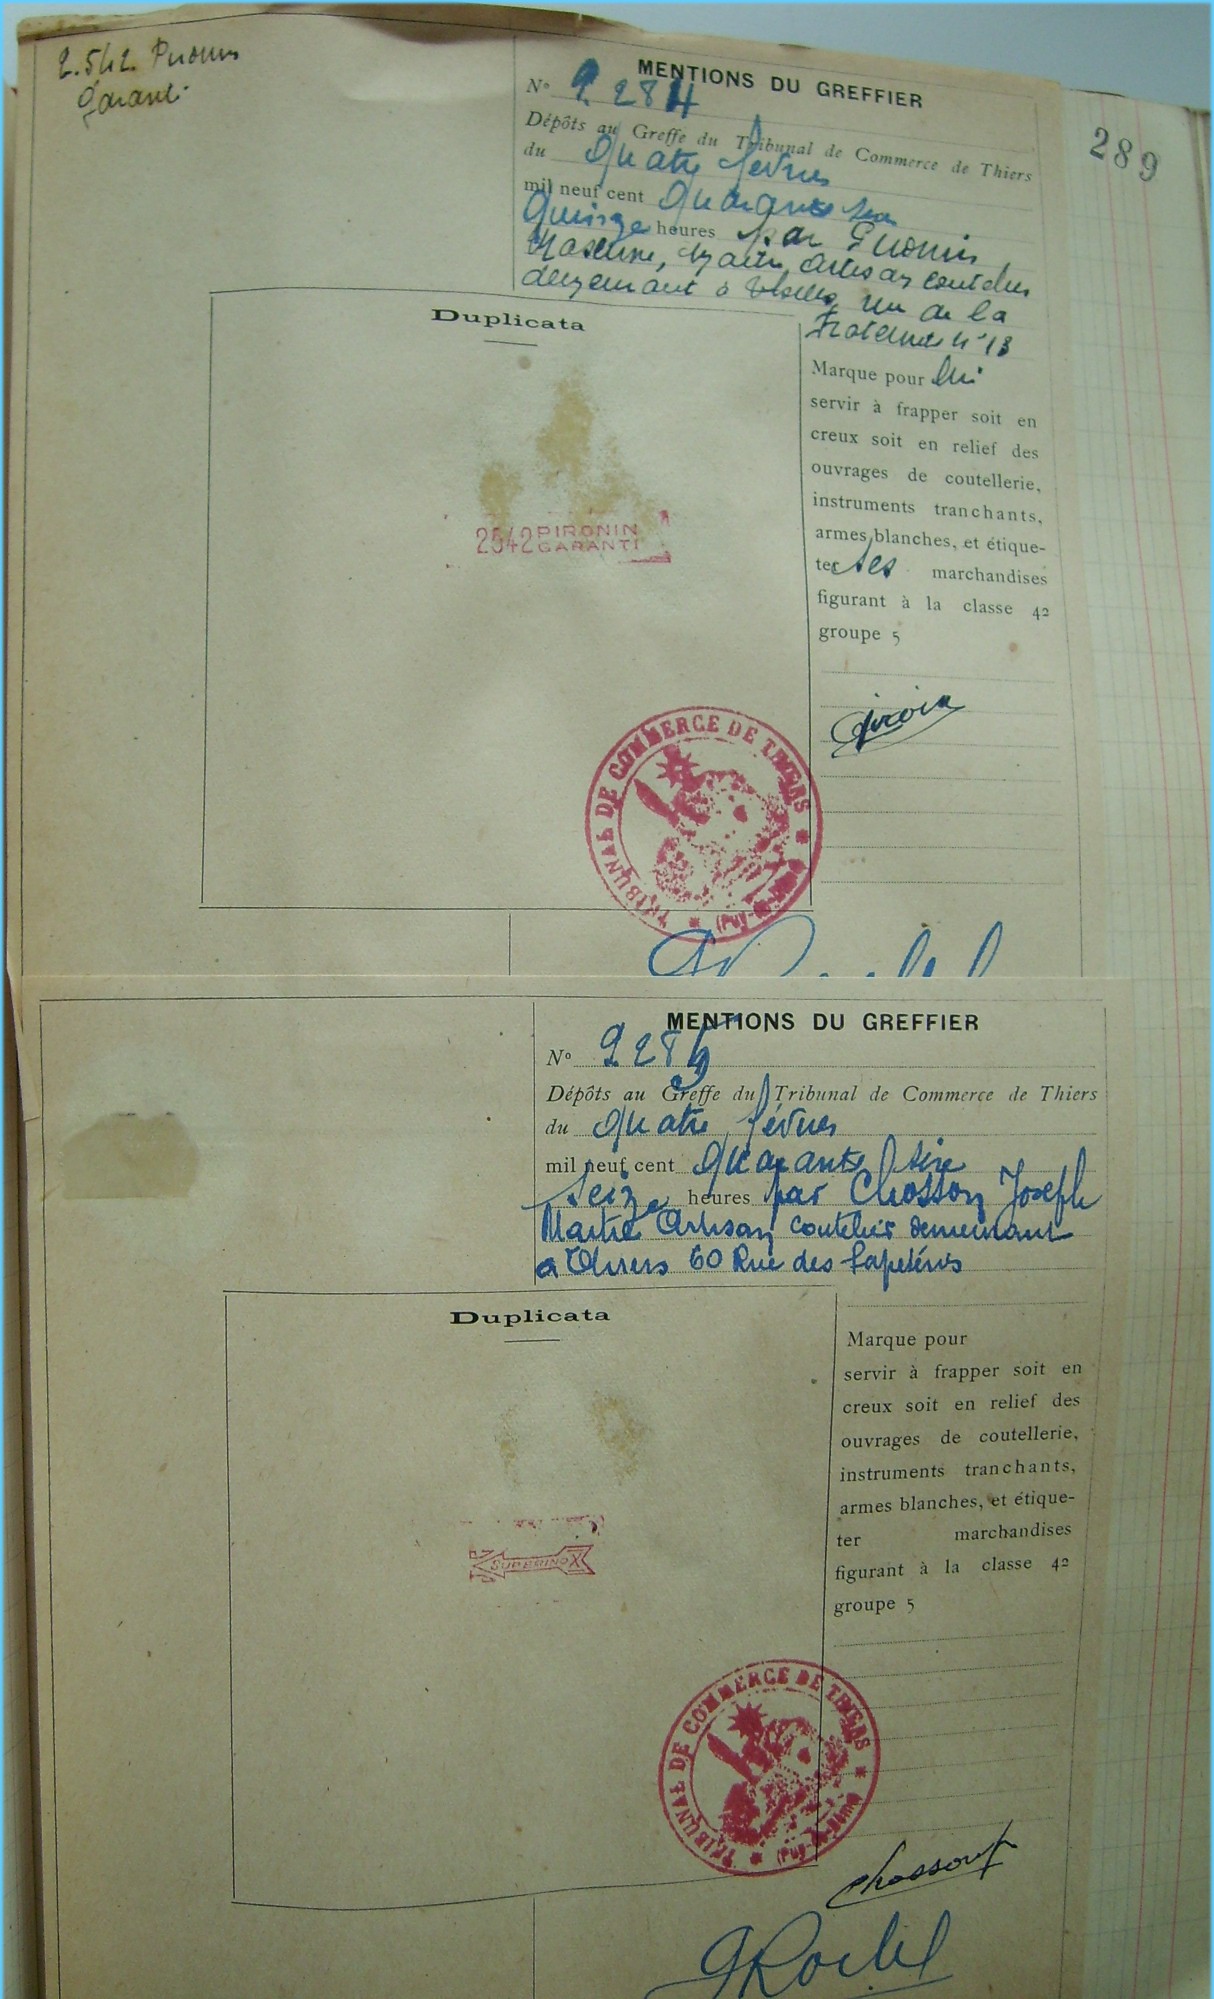 2.542 Pironin
Garanti
289
MENTIONS DU GREFFIER
N° 2284
Dépôts au Greffe du Tribunal de Commerce de Thiers
du Quatre février
mil neuf cent Quarante six
Quinze heures par Pironin
Maître Artisan coutelier
demeurant à Thiers, rue de la
Fraternité n° 13
Duplicata
Marque pour lui
servir à frapper soit en
creux soit en relief des
ouvrages de coutellerie,
instruments tranchants,
armes blanches, et étique-
ter ses marchandises
figurant à la classe 42
groupe 5
2542 PIRONIN
GARANTI
TRIBUNAL DE COMMERCE DE THIERS
(Puy-de-Dôme)
MENTIONS DU GREFFIER
N° 2285
Dépôts au Greffe du Tribunal de Commerce de Thiers
du Quatre février
mil neuf cent Quarante six
Seize heures par Chosson Joseph
Maitre Artisan coutelier demeurant
a Thiers 60 Rue des Papeteries
Duplicata
Marque pour
servir à frapper soit en
creux soit en relief des
ouvrages de coutellerie,
instruments tranchants,
armes blanches, et étique-
ter marchandises
figurant à la classe 42
groupe 5
SUPERINOX
TRIBUNAL DE COMMERCE DE THIERS
(Puy-de-Dôme)
Chosson